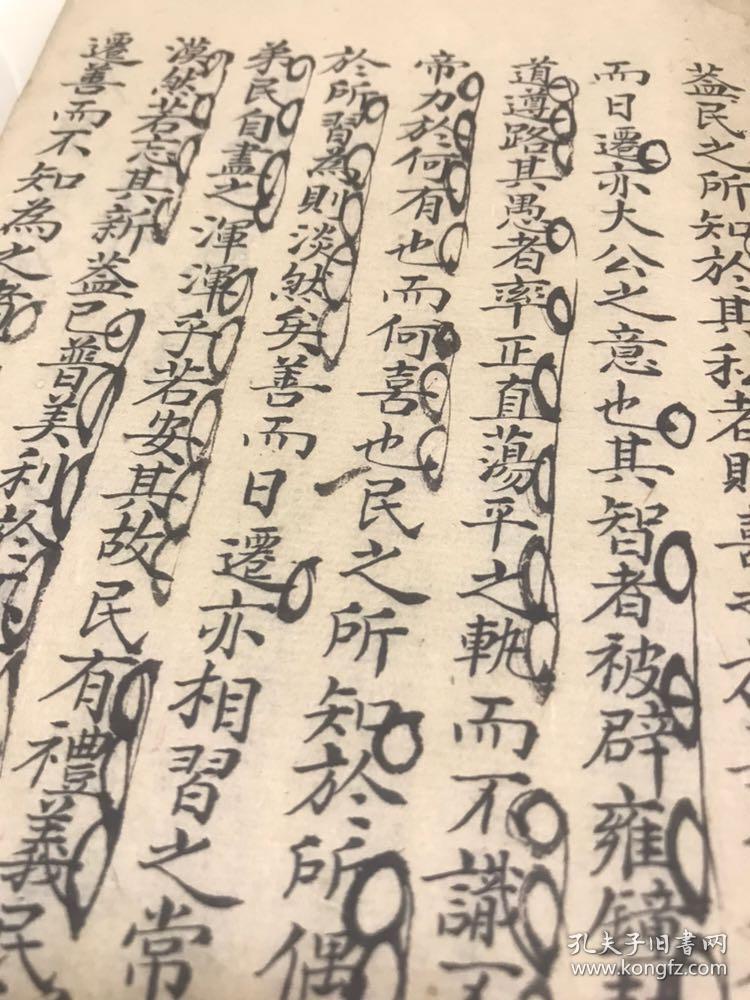 蓋民之所知於其利者則喜
而日遷亦大公之意也其智者被辟雍鐘
道遵路其愚者率正直蕩平之軌而不識
帝力於何有也而何喜也民之所知於所偶
於所習為則淡然矣善而日遷亦相習之常
弟民自盡之渾渾乎若安其故民有禮義民
漠然若忘其新蓋已普美利於
遷善而不知為之者
孔夫子旧書网
www.kongfz.com